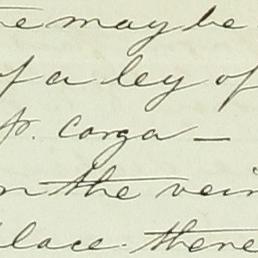 may be
of a ley of
p. carga —
on the vein
place. there